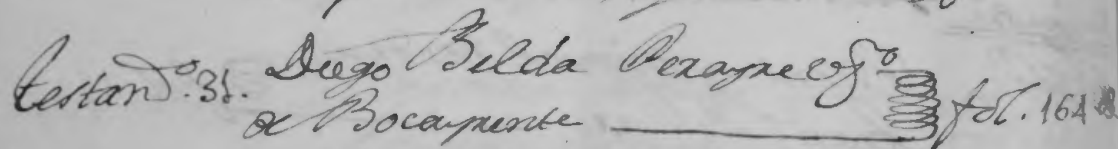 testam.to 31. Diego Belda Perayre vez.o
de Bocayrente fol. 164